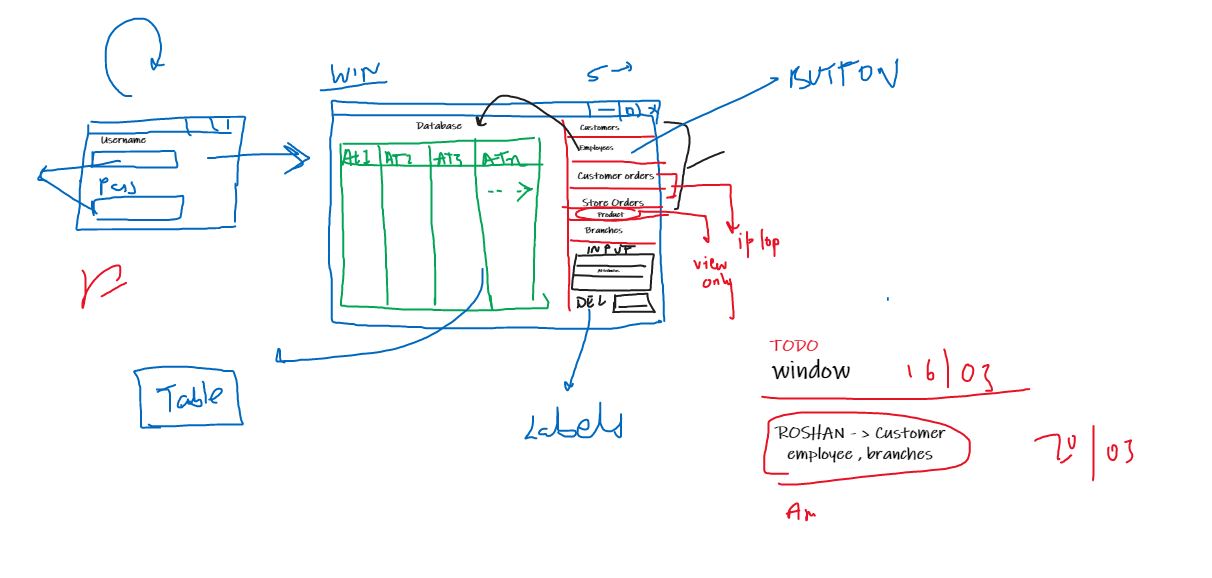 WIN
5 →
BUTTON
Username
Pass
Database
At1 AT2 AT3 ATn
Customers
Employees
Customer orders
Store Orders
Product
Branches
INPUT
Attributes
DEL
i/p /op
view
only
Table
Labels
TODO
window 16/03
ROSHAN -> Customer
employee , branches
20/03
Am